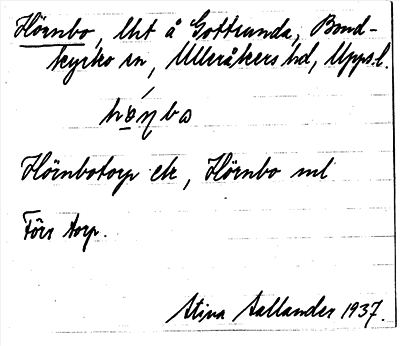 Hörnbo, lht å Gottsunda, Bond-
kyrko sn, Ulleråkers hd, Upps. l.
Hörnbotorp etc, Hörnbo ml
Förr torp.
Stina Aallander 1937.